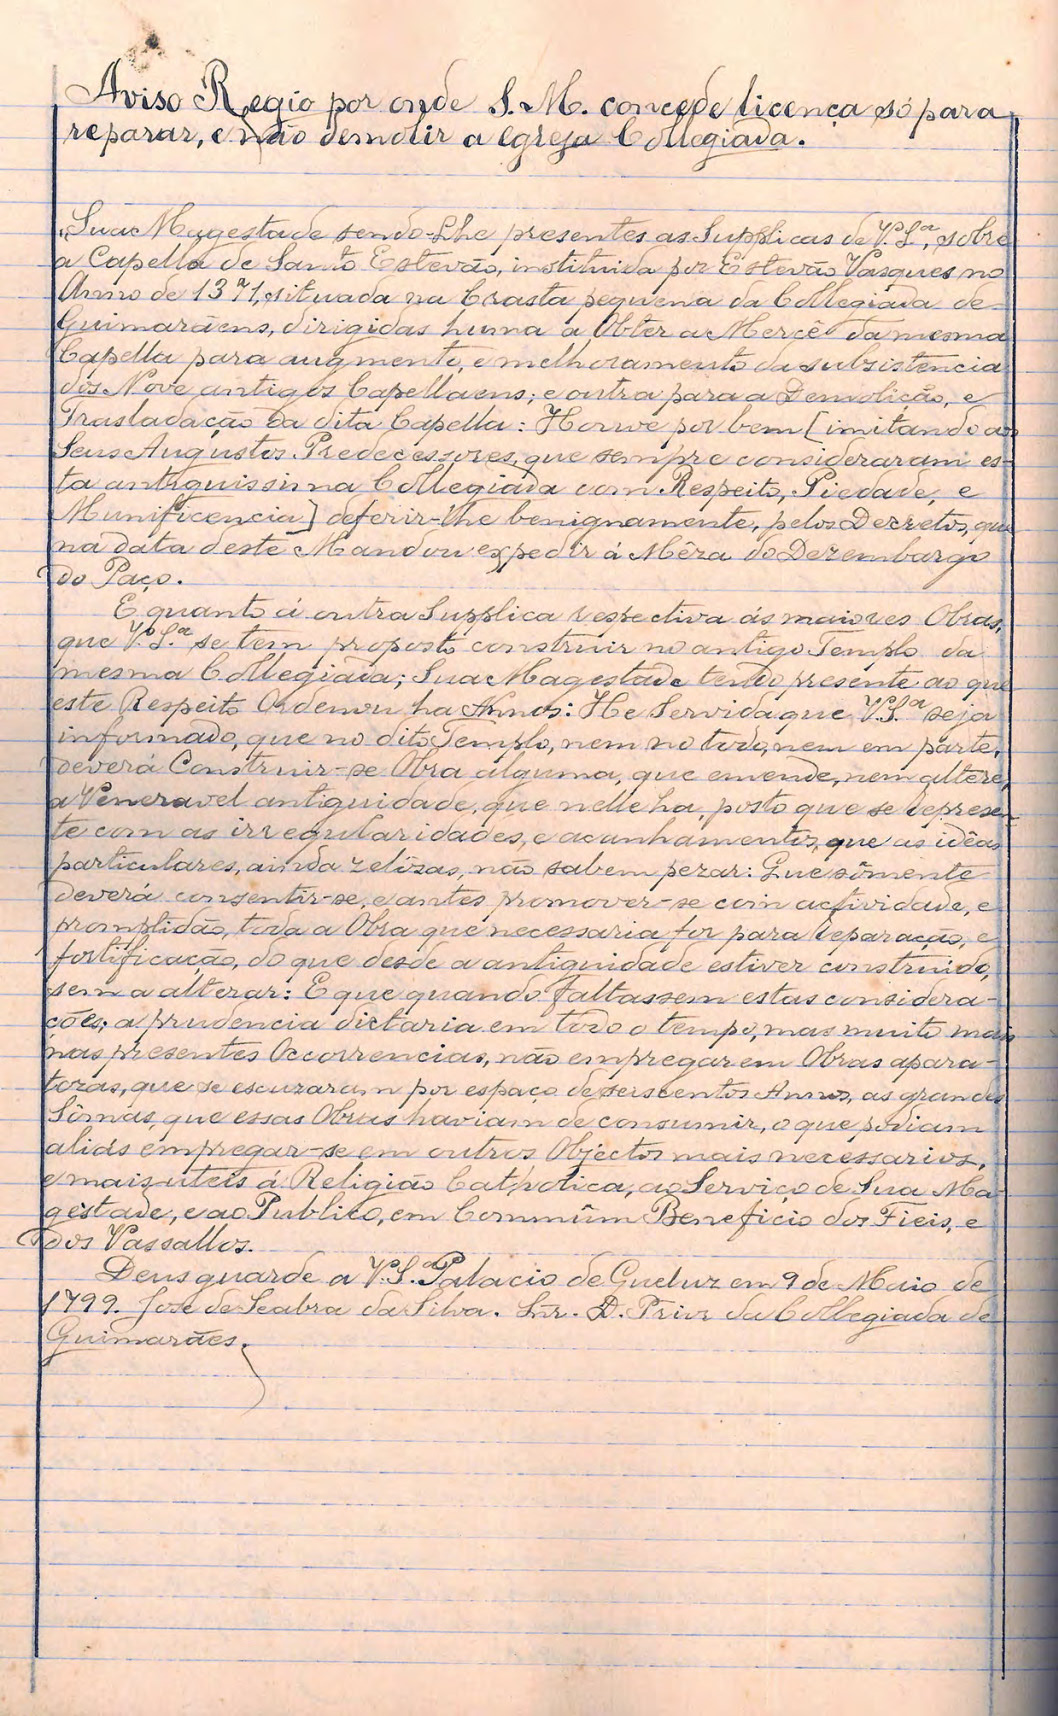 Aviso Regio por onde S. M. concede licença só para
reparar, e não demolir a egreja Collegiada.
"Sua Magestade sendo-Lhe presentes as Supplicas de V. S.ª, sobre
a Capella de Santo Estevão, instituida por Estevão Vasques no
Anno de 1371, situada na Crasta pequena da Collegiada de
Guimarãens, dirigidas huma a Obter a Mercê da mesma
Capella para augmento, e melhoramento da subsistencia
dos Nove antigos Capellaens; e outra para a Demolição, e
Trasladação da dita Capella: Houve por bem [imitando aos
Seus Augustos Predecessores, que sempre consideraram es-
ta antiquissima Collegiada com Respeito, Piedade, e
Munificencia] deferir-lhe benignamente, pelos Decretos, que
na data deste Mandou expedir á Mêza do Dezembargo
do Paço.
E quanto á outra Supplica respectiva ás maiores Obras,
que V. S.ª se tem proposto construir no antigo Templo da
mesma Collegiada; Sua Magestade tendo presente ao que
este Respeito Ordenou ha Annos: He Servida que V. S.ª seja
informado, que no dito Templo, nem no todo, nem em parte,
deverá Construir-se Obra alguma, que emende, nem altere,
a Veneravel antiguidade, que nelle ha, posto que se represen-
te com as irregularidades, e acanhamentos, que as idêas
particulares, ainda zelózas, não sabem pezar: Que sómente
deverá consentir-se, e antes promover-se com actividade, e
promptidão, toda a Obra que necessaria for para reparação, e
fortificação, do que desde a antiguidade estiver construido,
sem a alterar: E que quando faltassem estas considera-
ções; a prudencia dictaria em todo o tempo, mas muito mais
nas presentes Occorrencias, não empregar em Obras apara-
tozas, que se escuzaram por espaço de seiscentos Annos, as grandes
Sômas, que essas Obras haviam de consumir, o que podiam
aliás empregar-se em outros Objectos mais necessarios,
e mais uteis á Religião Catholica, ao Serviço de Sua Ma-
gestade, e ao Publico, em Commûm Beneficio dos Fieis, e
dos Vassallos.
Deus guarde a V. S.ª Palacio de Queluz em 9 de Maio de
1799. José de Seabra da Silva. Snr. D. Prior da Collegiada de
Guimarães.